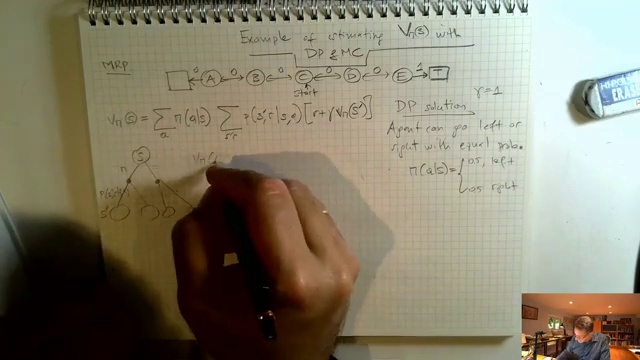 Example of estimating Vπ(s) with
DP & MC
MRP
0 A 0 B 0 C 0 D 0 E 1 T
start
Vπ(s) = Σ_a π(a|s) Σ_s',r p(s',r|s,a) [r+γVπ(s')]
DP solution γ=1
Agent can go left or
right with equal prob.
π(a|s) = { 0.5, left
0.5 right
S
π
s'
Vπ(
ERAS